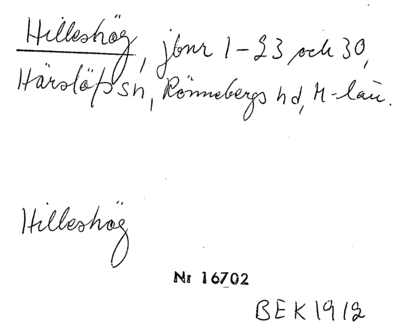 Hilleshög, jbnr 1-23 och 30,
Härslöfs sn, Rönnebergs hd, M-län.
Hilleshög
Nr 16702
BEK 1912